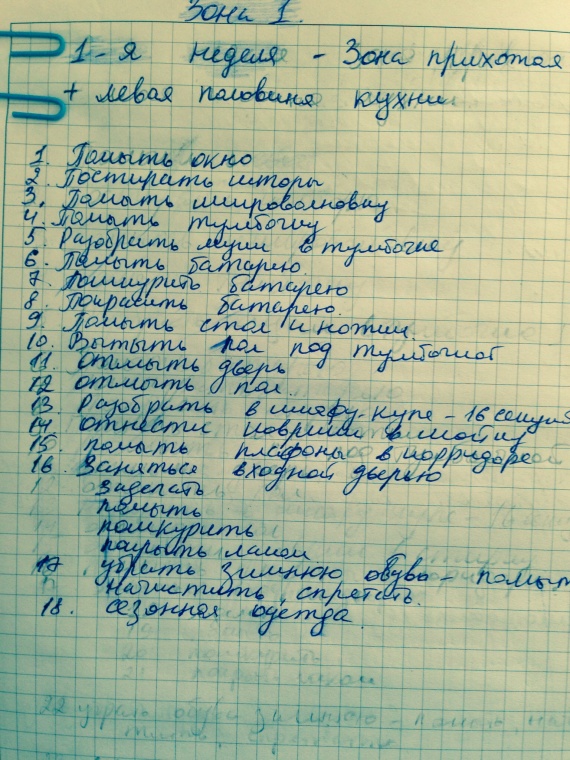 Зона 1.
1-я неделя - Зона прихожая
+ левая половина кухни
1. Помыть окно
2. Постирать шторы
3. Помыть микроволновку
4. Помыть тумбочку
5. Разобрать кухни в тумбочке
6. Помыть батарею
7. Пошкурить батарею
8. Покрасить батарею.
9. Помыть стол и ножки.
10. Вытыть пол под тумбочкой
11. Отмыть дверь
12 отмыть пол.
13. Разобрать в шкафу-купе - 16 секций
14. отнести коврики в мойку
15. помыть плафоны в корридоре
16. Заняться входной дверью
заделать
помыть
пошкурить
покрыть лаком
17 убрать зимнюю обувь - помыть
начистить, спрятать.
18. сезонная одежда.